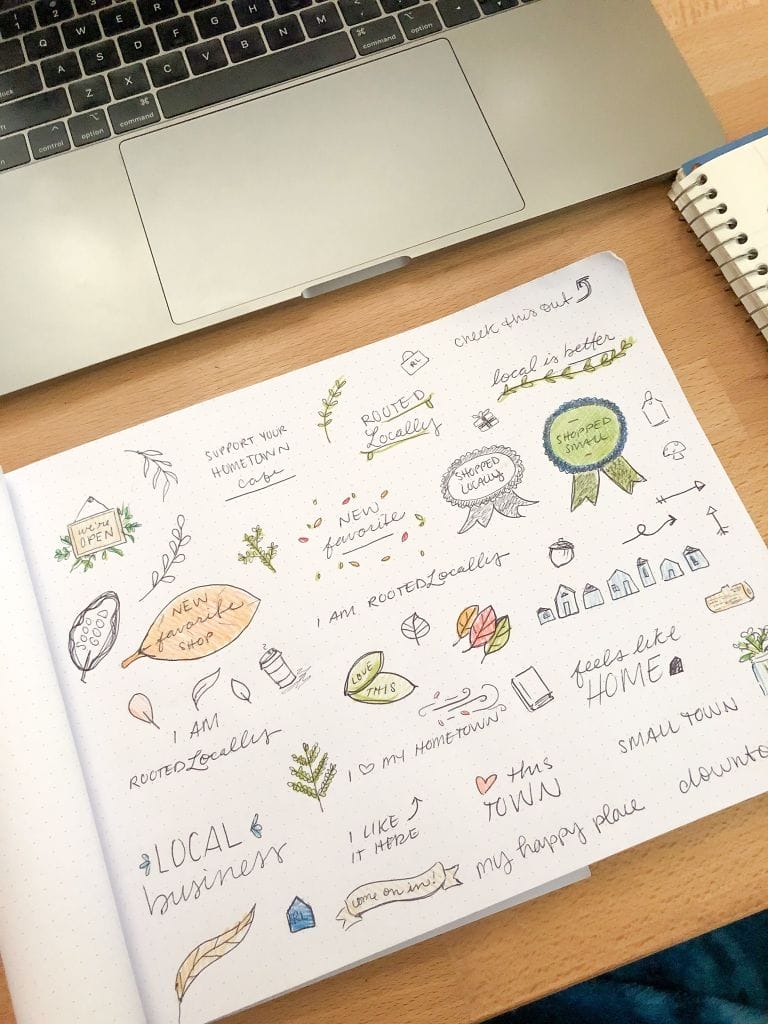 1 2
Q W E R
A S D F G H
Z X C V B N M
control option command command option
check this out
RL
local is better
ROOTED
Locally
SUPPORT YOUR
HOMETOWN
cafe
SHOPPED
SMALL
SHOPPED
LOCALLY
we're
OPEN
NEW
favorite
I AM ROOTED Locally
SOOO
GOOD
NEW
favorite
SHOP
LOVE
THIS
feels like
HOME
I AM
ROOTED Locally
I ♡ MY HOMETOWN
SMALL TOWN
♡ this
TOWN
I LIKE
IT HERE
LOCAL
business
downto
my happy place
come on in!